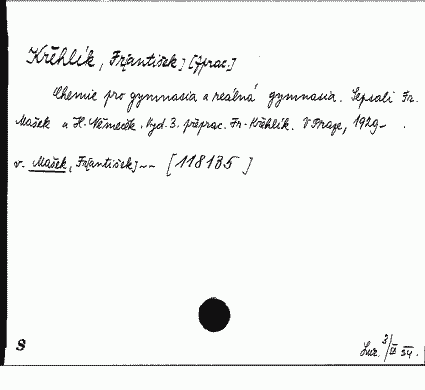 Křehlík, Fr[antišek] [zprac.]
Chemie pro gymnasia a reálná gymnasia. Sepsali Fr.
Mašek a H. Němeček. Vyd. 3. přeprac. Fr. Křehlík. V Praze, 1929-
v. Mašek, Fr[antišek] -- [118135]
S
3/IX 54.